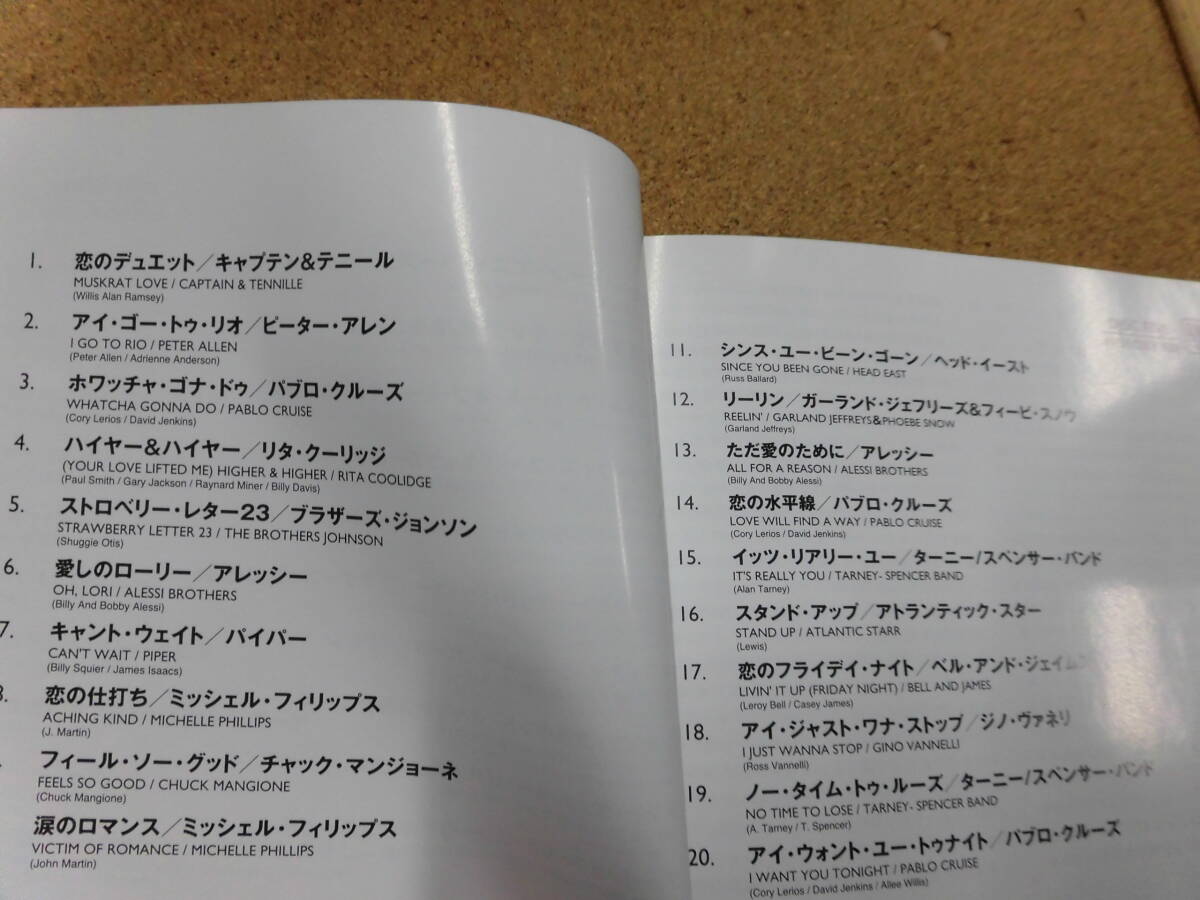 1. 恋のデュエット／キャプテン&テニール
MUSKRAT LOVE / CAPTAIN & TENNILLE
(Willis Alan Ramsey)
2. アイ・ゴー・トゥ・リオ／ピーター・アレン
I GO TO RIO / PETER ALLEN
(Peter Allen / Adrienne Anderson)
3. ホワッチャ・ゴナ・ドゥ／パブロ・クルーズ
WHATCHA GONNA DO / PABLO CRUISE
(Cory Lerios / David Jenkins)
4. ハイヤー&ハイヤー／リタ・クーリッジ
(YOUR LOVE LIFTED ME) HIGHER & HIGHER / RITA COOLIDGE
(Paul Smith / Gary Jackson / Raynard Miner / Billy Davis)
5. ストロベリー・レター23／ブラザーズ・ジョンソン
STRAWBERRY LETTER 23 / THE BROTHERS JOHNSON
(Shuggie Otis)
6. 愛しのローリー／アレッシー
OH, LORI / ALESSI BROTHERS
(Billy And Bobby Alessi)
7. キャント・ウェイト／パイパー
CAN'T WAIT / PIPER
(Billy Squier / James Isaacs)
8. 恋の仕打ち／ミッシェル・フィリップス
ACHING KIND / MICHELLE PHILLIPS
(J. Martin)
フィール・ソー・グッド／チャック・マンジョーネ
FEELS SO GOOD / CHUCK MANGIONE
(Chuck Mangione)
涙のロマンス／ミッシェル・フィリップス
VICTIM OF ROMANCE / MICHELLE PHILLIPS
(John Martin)
11. シンス・ユー・ビーン・ゴーン／ヘッド・イースト
SINCE YOU BEEN GONE / HEAD EAST
(Russ Ballard)
12. リーリン／ガーランド・ジェフリーズ&フィービ・スノウ
REELIN' / GARLAND JEFFREYS&PHOEBE SNOW
(Garland Jeffreys)
13. ただ愛のために／アレッシー
ALL FOR A REASON / ALESSI BROTHERS
(Billy And Bobby Alessi)
14. 恋の水平線／パブロ・クルーズ
LOVE WILL FIND A WAY / PABLO CRUISE
(Cory Lerios / David Jenkins)
15. イッツ・リアリー・ユー／ターニー/スペンサー・バンド
IT'S REALLY YOU / TARNEY- SPENCER BAND
(Alan Tarney)
16. スタンド・アップ／アトランティック・スター
STAND UP / ATLANTIC STARR
(Lewis)
17. 恋のフライデイ・ナイト／ベル・アンド・ジェイムス
LIVIN' IT UP (FRIDAY NIGHT) / BELL AND JAMES
(Leroy Bell / Casey James)
18. アイ・ジャスト・ワナ・ストップ／ジノ・ヴァネリ
I JUST WANNA STOP / GINO VANNELLI
(Ross Vannelli)
19. ノー・タイム・トゥ・ルーズ／ターニー/スペンサー・バンド
NO TIME TO LOSE / TARNEY- SPENCER BAND
(A. Tarney / T. Spencer)
20. アイ・ウォント・ユー・トゥナイト／パブロ・クルーズ
I WANT YOU TONIGHT / PABLO CRUISE
(Cory Lerios / David Jenkins / Allee Willis)